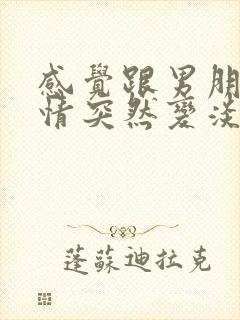 感覺跟男朋
情突然變淡
蓬蘇迪拉克